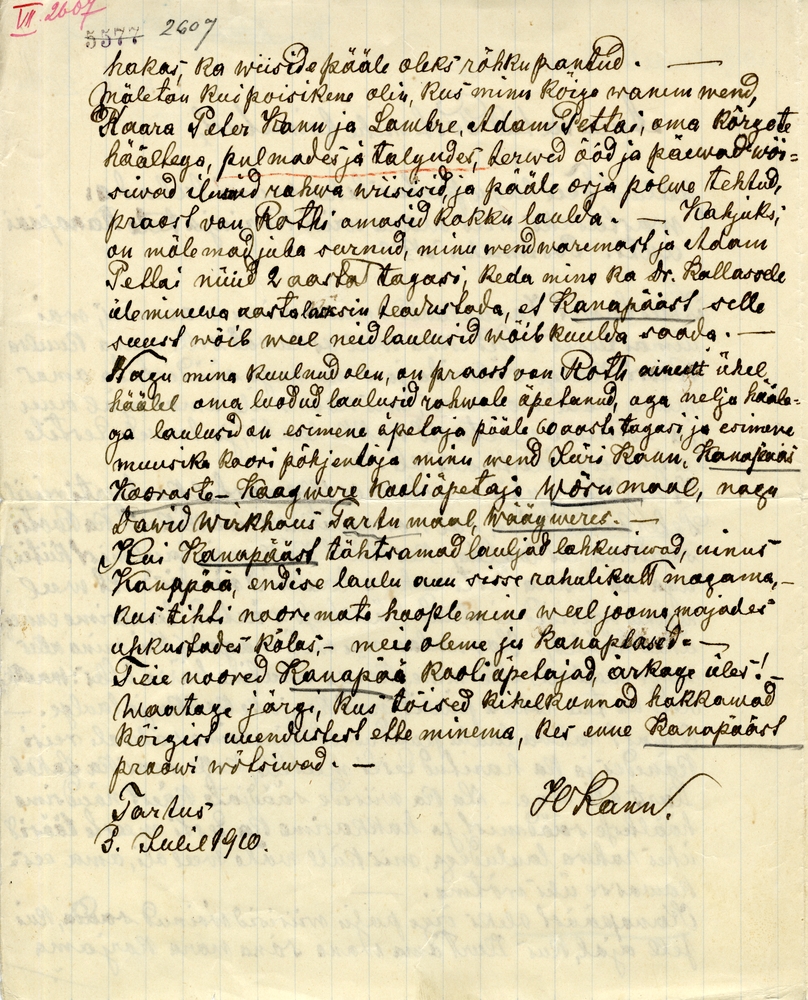 VII 2607
5577 2607
hakas, ka wiiside pääle oleks rõhku pantud. —
Mäletan kui poisikene olin, kus minu kõige wanem wend,
Kaara Peter Kann ja Lambre, Adam Pettai, oma kõrgete
häältega, pulmades ja talgudes, terwed ööd ja päewad wõi=
siwad ilmaid rahwa wiisisid, ja pääle orja põlwe tehtud,
praost von Rothi omasid kokku laulda. — Kahjuks,
on mõlemad juba surnud, minu wend waremast ja Adam
Pettai nüüd 2 aastat tagasi, keda mina ka Dr. Kallasele
üleminewa aasta teadustada, et Kanapääst selle
suust wõib weel neid laulusid wõib kuulda saada. —
Nagu mina kuulnud olen, on praost von Roth ainult ühel
häälel oma luodud laulusid rahwale õpetanud, aga nelja hääle-
ga laulusid on esimene õpetaja pääle 60 aasta tagasi ja esimene
muusika koori põhjentaja minu wend Jüri Kann, Kanapääs
Kooraste - Kaagwere kooliõpetaja Wõrumaal, nagu
Dawid Wirkhaus Tartumaal, Wäägweres. —
Kui Kanapääst tähtsamad lauljad lahkusiwad, uinus
Kanapää, endise laulu auu sisse rahulikult magama, -
kus tihti nooremate hooplemine weel joomamajades
uhkustades kõlas, - meie oleme ju kanapläsed. -
Teie noored Kanapää kooliõpetajad, ärkage üles! -
Waatage järgi, kus tõised kihelkonnad hakkawad
kõigist uuendustest ette minema, kes enne Kanapääst
proowi wõtsiwad. —
Tartus HKann.
3. Julil 1910.